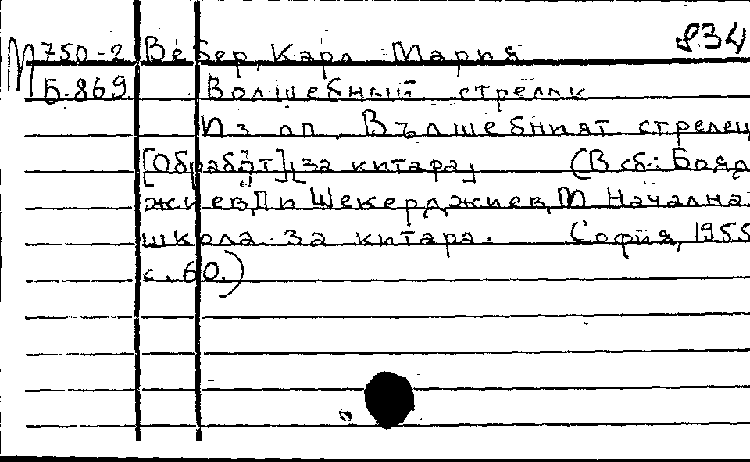 М 750-2 Вебер, Карл Мария 834
Б-869 Волшебный стрелок
Из оп. Вълшебният стрелец
[Обработ], за китара, (В сб.: Бояд
жиев, Д и Шекерджиев, М Начална
школа за китара. София, 1955
с. 60.)